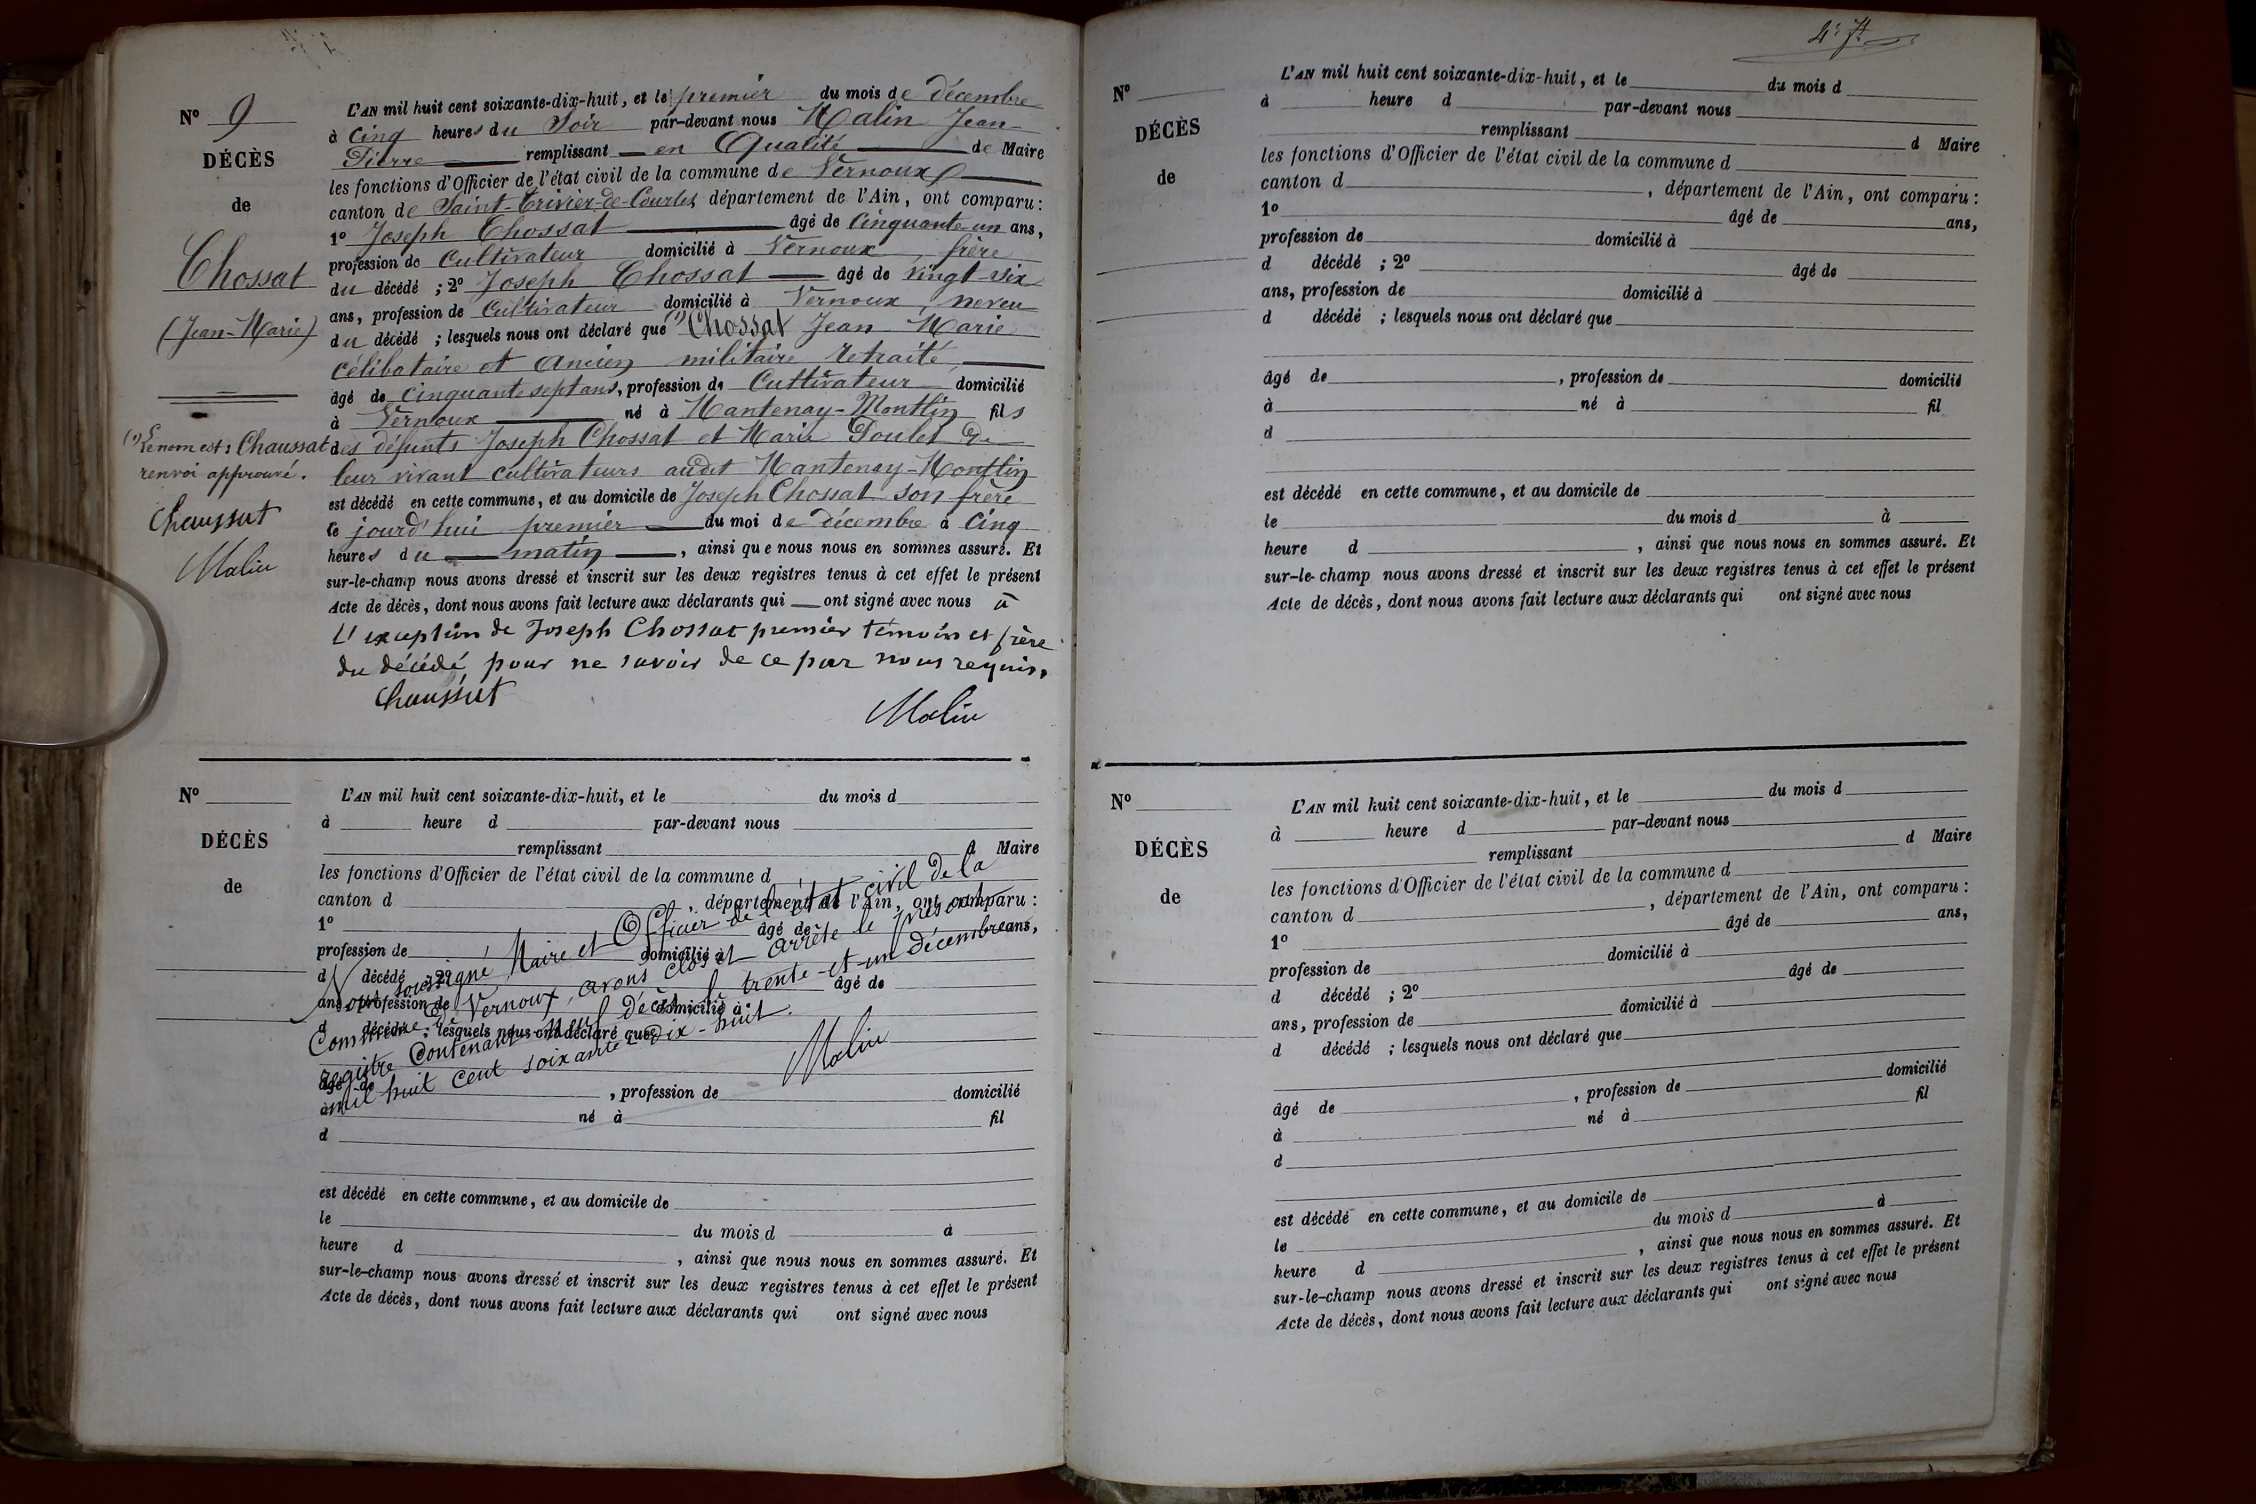 N° 9
DÉCÈS
de
Chossat
(Jean-Marie)
(1) Le nom est: Chaussat
renvoi approuvé.
Chaussat
Malin
L'AN mil huit cent soixante-dix-huit, et le premier du mois de décembre
à cinq heures du Soir par-devant nous Malin Jean-
Pierre remplissant en Qualité de Maire
les fonctions d'Officier de l'état civil de la commune de Vernoux
canton de Saint-Trivier-de-Courtes, département de l'Ain, ont comparu:
1° Joseph Chossat âgé de cinquante un ans,
profession de Cultivateur domicilié à Vernoux, frère
du décédé ; 2° Joseph Chossat âgé de vingt-six
ans, profession de Cultivateur domicilié à Vernoux, neveu
du décédé ; lesquels nous ont déclaré que (1) Chossat Jean Marie
célibataire et Ancien militaire retraité,
âgé de cinquante sept ans, profession de Cultivateur domicilié
à Vernoux né à Mantenay-Montlin fils
des défunts Joseph Chossat et Marie Poulet De
leur vivant cultivateurs audit Mantenay-Montlin
est décédé en cette commune, et au domicile de Joseph Chossat son frère
le jourd'hui premier du moi de décembre à cinq
heures du matin, ainsi que nous nous en sommes assuré. Et
sur-le-champ nous avons dressé et inscrit sur les deux registres tenus à cet effet le présent
Acte de décès, dont nous avons fait lecture aux déclarants qui ont signé avec nous à
L'exception de Joseph Chossat premier témoin et frère
du décédé, pour ne savoir de ce par nous requis.
Chaussat Malin
N°
DÉCÈS
de
L'AN mil huit cent soixante-dix-huit, et le du mois d
à heure d par-devant nous
remplissant d Maire
les fonctions d'Officier de l'état civil de la commune d
canton d , département de l'Ain, ont comparu :
1° âgé de ans,
profession de domicilié à
d décédé ; 2° âgé de
ans, profession de domicilié à
d décédé ; lesquels nous ont déclaré que
âgé de , profession de domicilié
à né à fil
d
est décédé en cette commune, et au domicile de
le du mois d à
heure d , ainsi que nous nous en sommes assuré. Et
sur-le-champ nous avons dressé et inscrit sur les deux registres tenus à cet effet le présent
Acte de décès, dont nous avons fait lecture aux déclarants qui ont signé avec nous
Nous soussigné Maire et Officier de l'état civil de la
Commune de Vernoux, avons clos et arrête le présent
registre contenant neuf décès, le trente-et-un décembre
mil huit cent soixante-dix-huit.
Malin
N°
DÉCÈS
de
L'AN mil huit cent soixante-dix-huit, et le du mois d
à heure d par-devant nous
remplissant d Maire
les fonctions d'Officier de l'état civil de la commune d
canton d , département de l'Ain, ont comparu :
1° âgé de ans,
profession de domicilié à
d décédé ; 2° âgé de
ans, profession de domicilié à
d décédé ; lesquels nous ont déclaré que
âgé de , profession de domicilié
à né à fil
d
est décédé en cette commune, et au domicile de
le du mois d à
heure d , ainsi que nous nous en sommes assuré. Et
sur-le-champ nous avons dressé et inscrit sur les deux registres tenus à cet effet le présent
Acte de décès, dont nous avons fait lecture aux déclarants qui ont signé avec nous
N°
DÉCÈS
de
L'AN mil huit cent soixante-dix-huit, et le du mois d
à heure d par-devant nous
remplissant d Maire
les fonctions d'Officier de l'état civil de la commune d
canton d , département de l'Ain, ont comparu :
1° âgé de ans,
profession de domicilié à
d décédé ; 2° âgé de
ans, profession de domicilié à
d décédé ; lesquels nous ont déclaré que
âgé de , profession de domicilié
à né à fil
d
est décédé en cette commune, et au domicile de
le du mois d à
heure d , ainsi que nous nous en sommes assuré. Et
sur-le-champ nous avons dressé et inscrit sur les deux registres tenus à cet effet le présent
Acte de décès, dont nous avons fait lecture aux déclarants qui ont signé avec nous